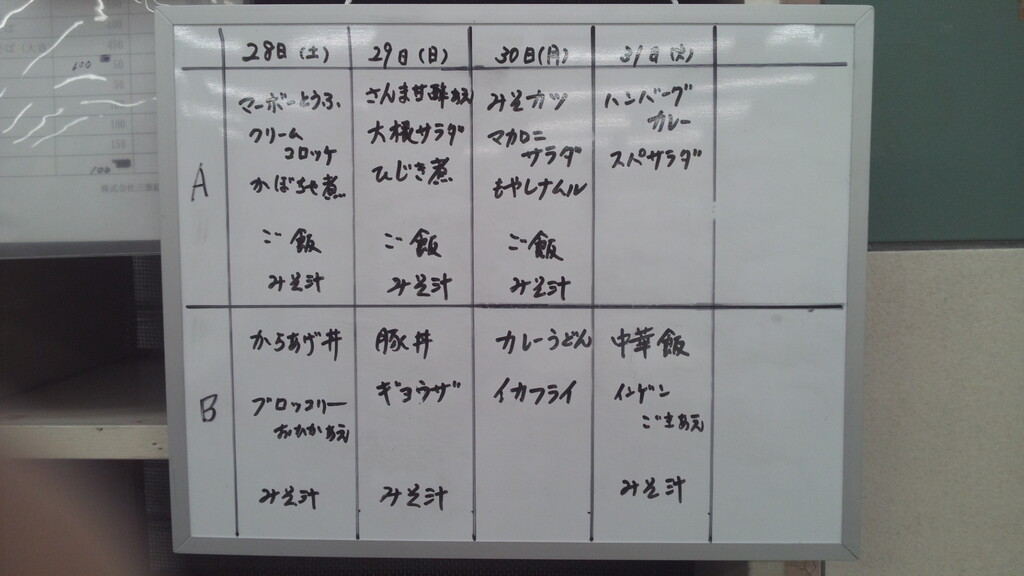 28日(土) 29日(日) 30日(月) 31日(火)
A
マーボーとうふ
クリーム
コロッケ
かぼちゃ煮
ご飯
みそ汁
さんま甘酢あえ
大根サラダ
ひじき煮
ご飯
みそ汁
みそカツ
マカロニ
サラダ
もやしナムル
ご飯
みそ汁
ハンバーグ
カレー
スパサラダ
B
からあげ丼
ブロッコリー
おひかあえ
みそ汁
豚丼
ギョウザ
みそ汁
カレーうどん
イカフライ
中華飯
インゲン
ごまあえ
みそ汁
100